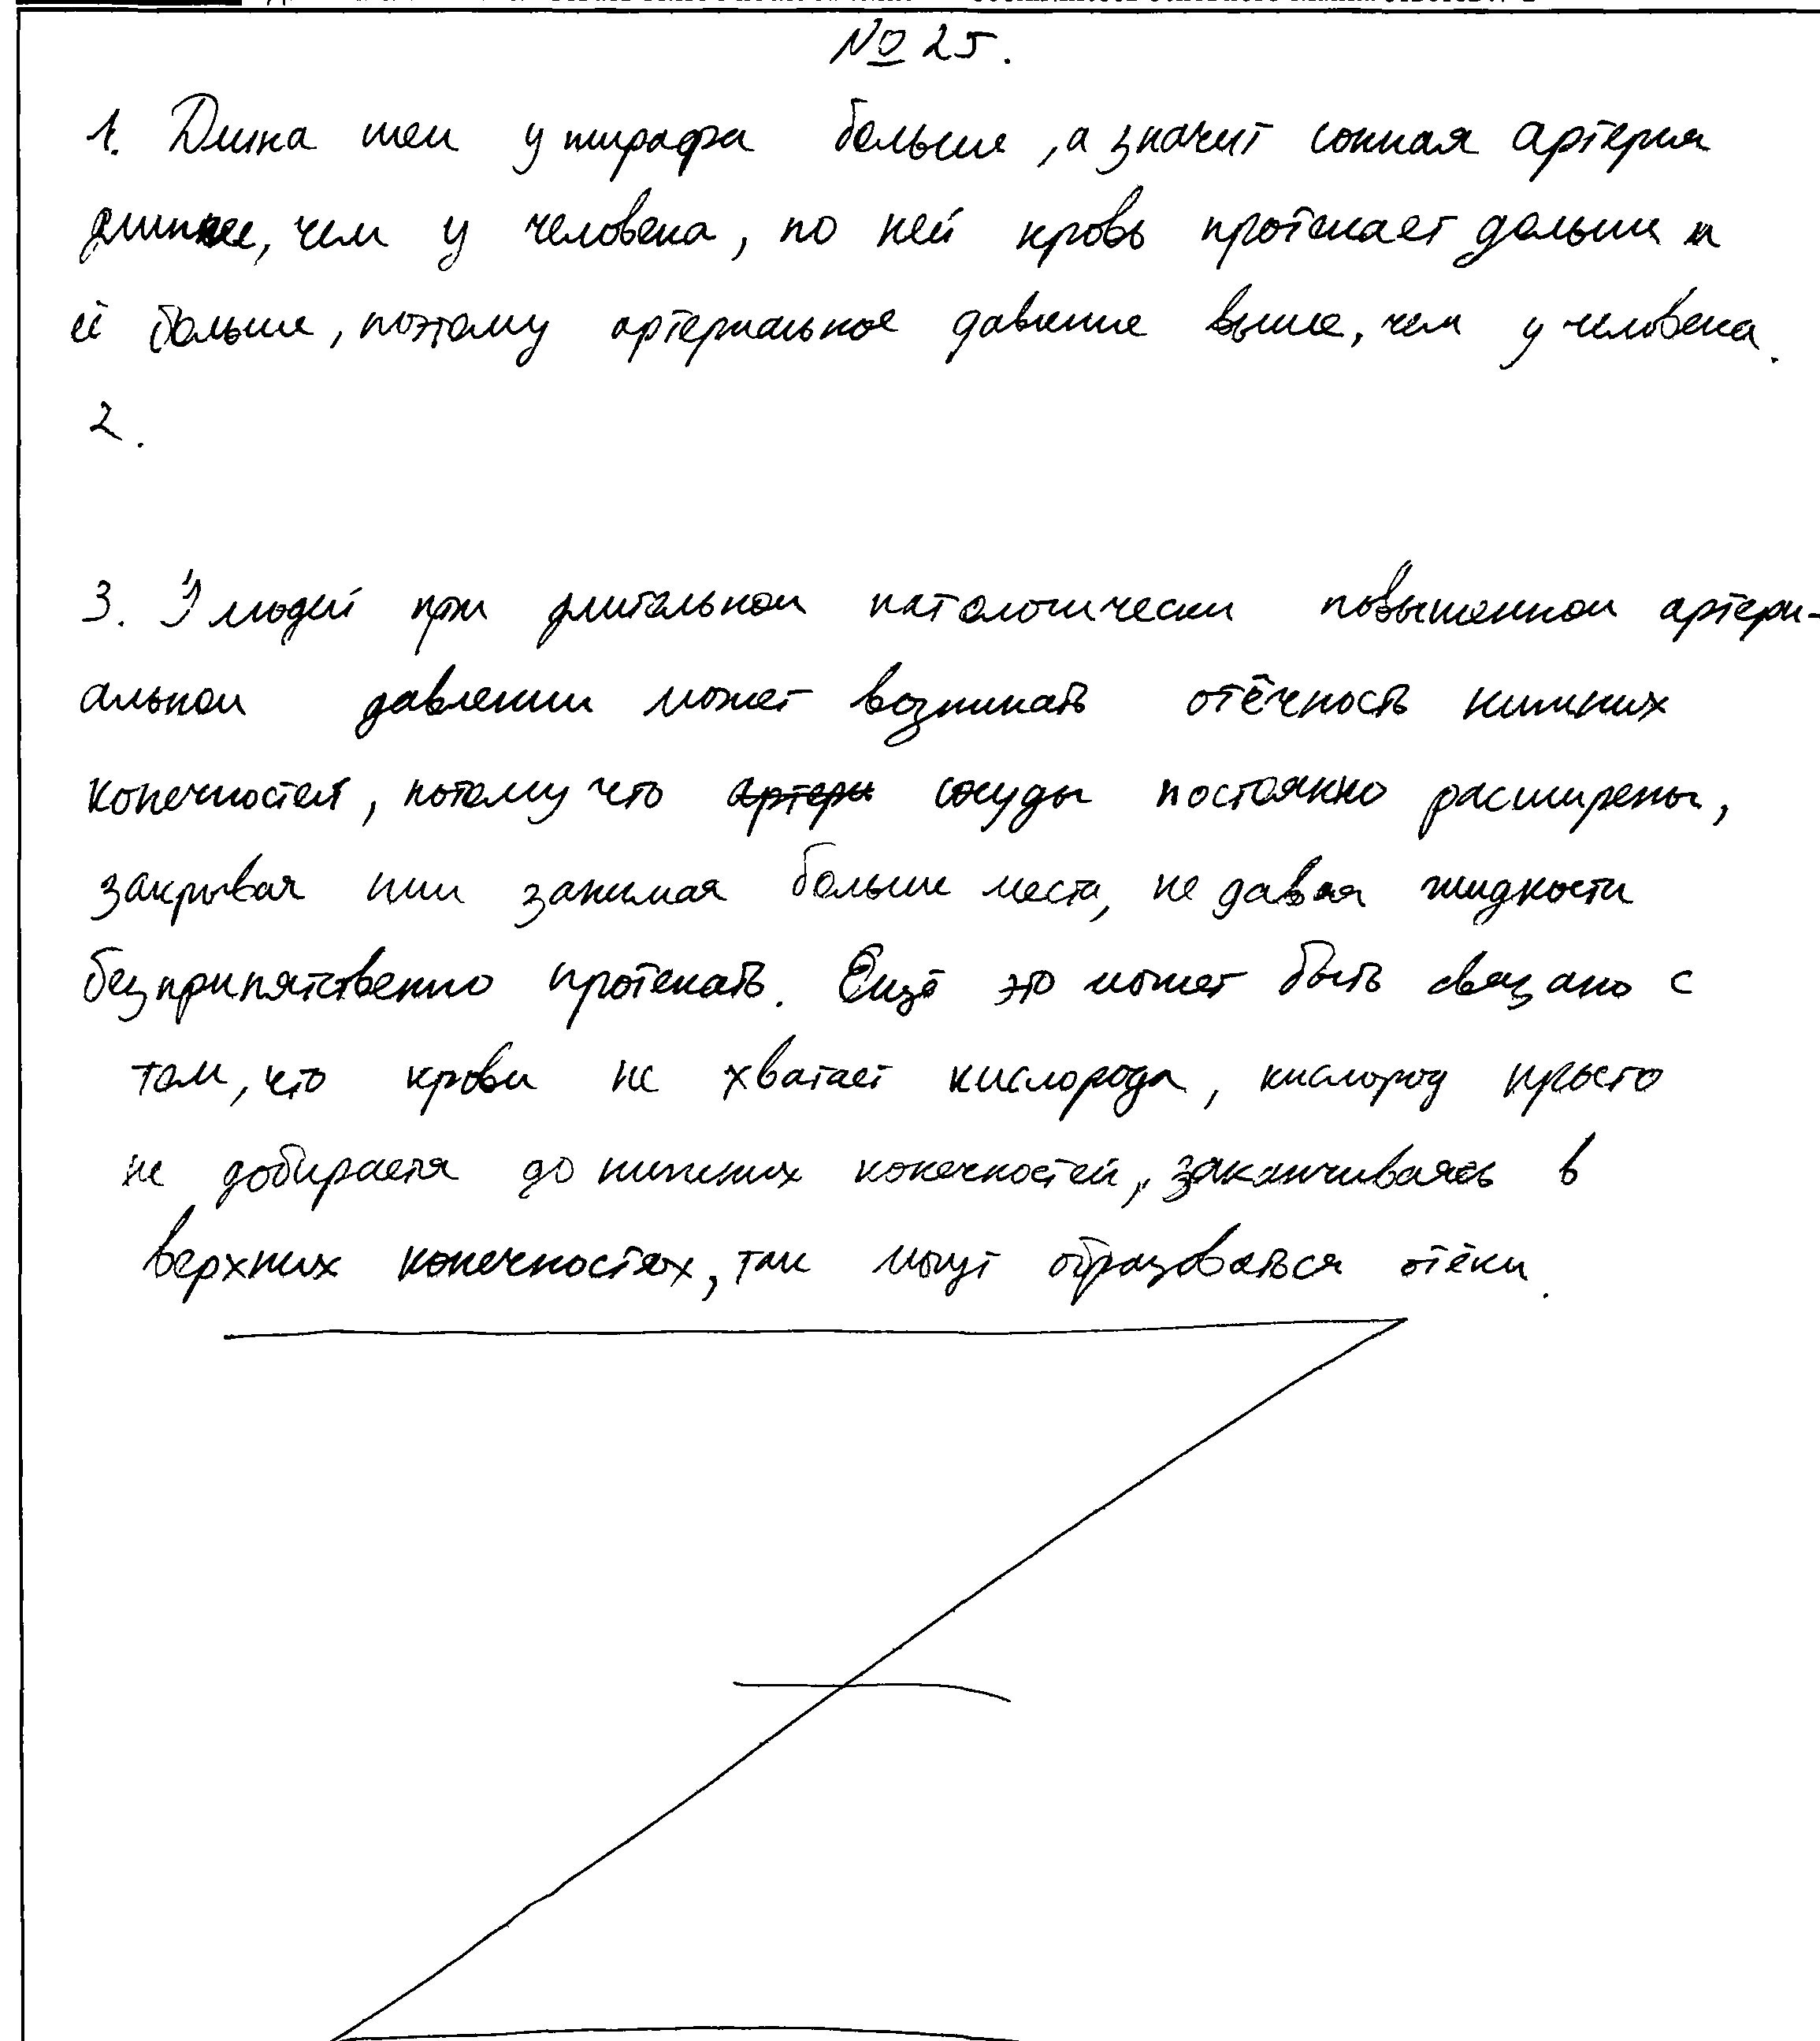 № 25.
1. Длина шеи у жирафа больше, а значит сонная артерия
длиннее, чем у человека, по ней кровь протекает дольше и
её больше, поэтому артериальное давление выше, чем у человека.
2.
3. У людей при длительном патологически повышенном артери-
альном давлении может возникать отёчность нижних
конечностей, потому что артери сосуды постоянно расширены,
закрывая или занимая больше места, не давая жидкости
безприпятственно протекать. Ещё это может быть связано с
тем, что крови не хватает кислорода, кислород просто
не добирается до нижних конечностей, заканчиваясь в
верхних конечностях, так могут образоваться отёки.